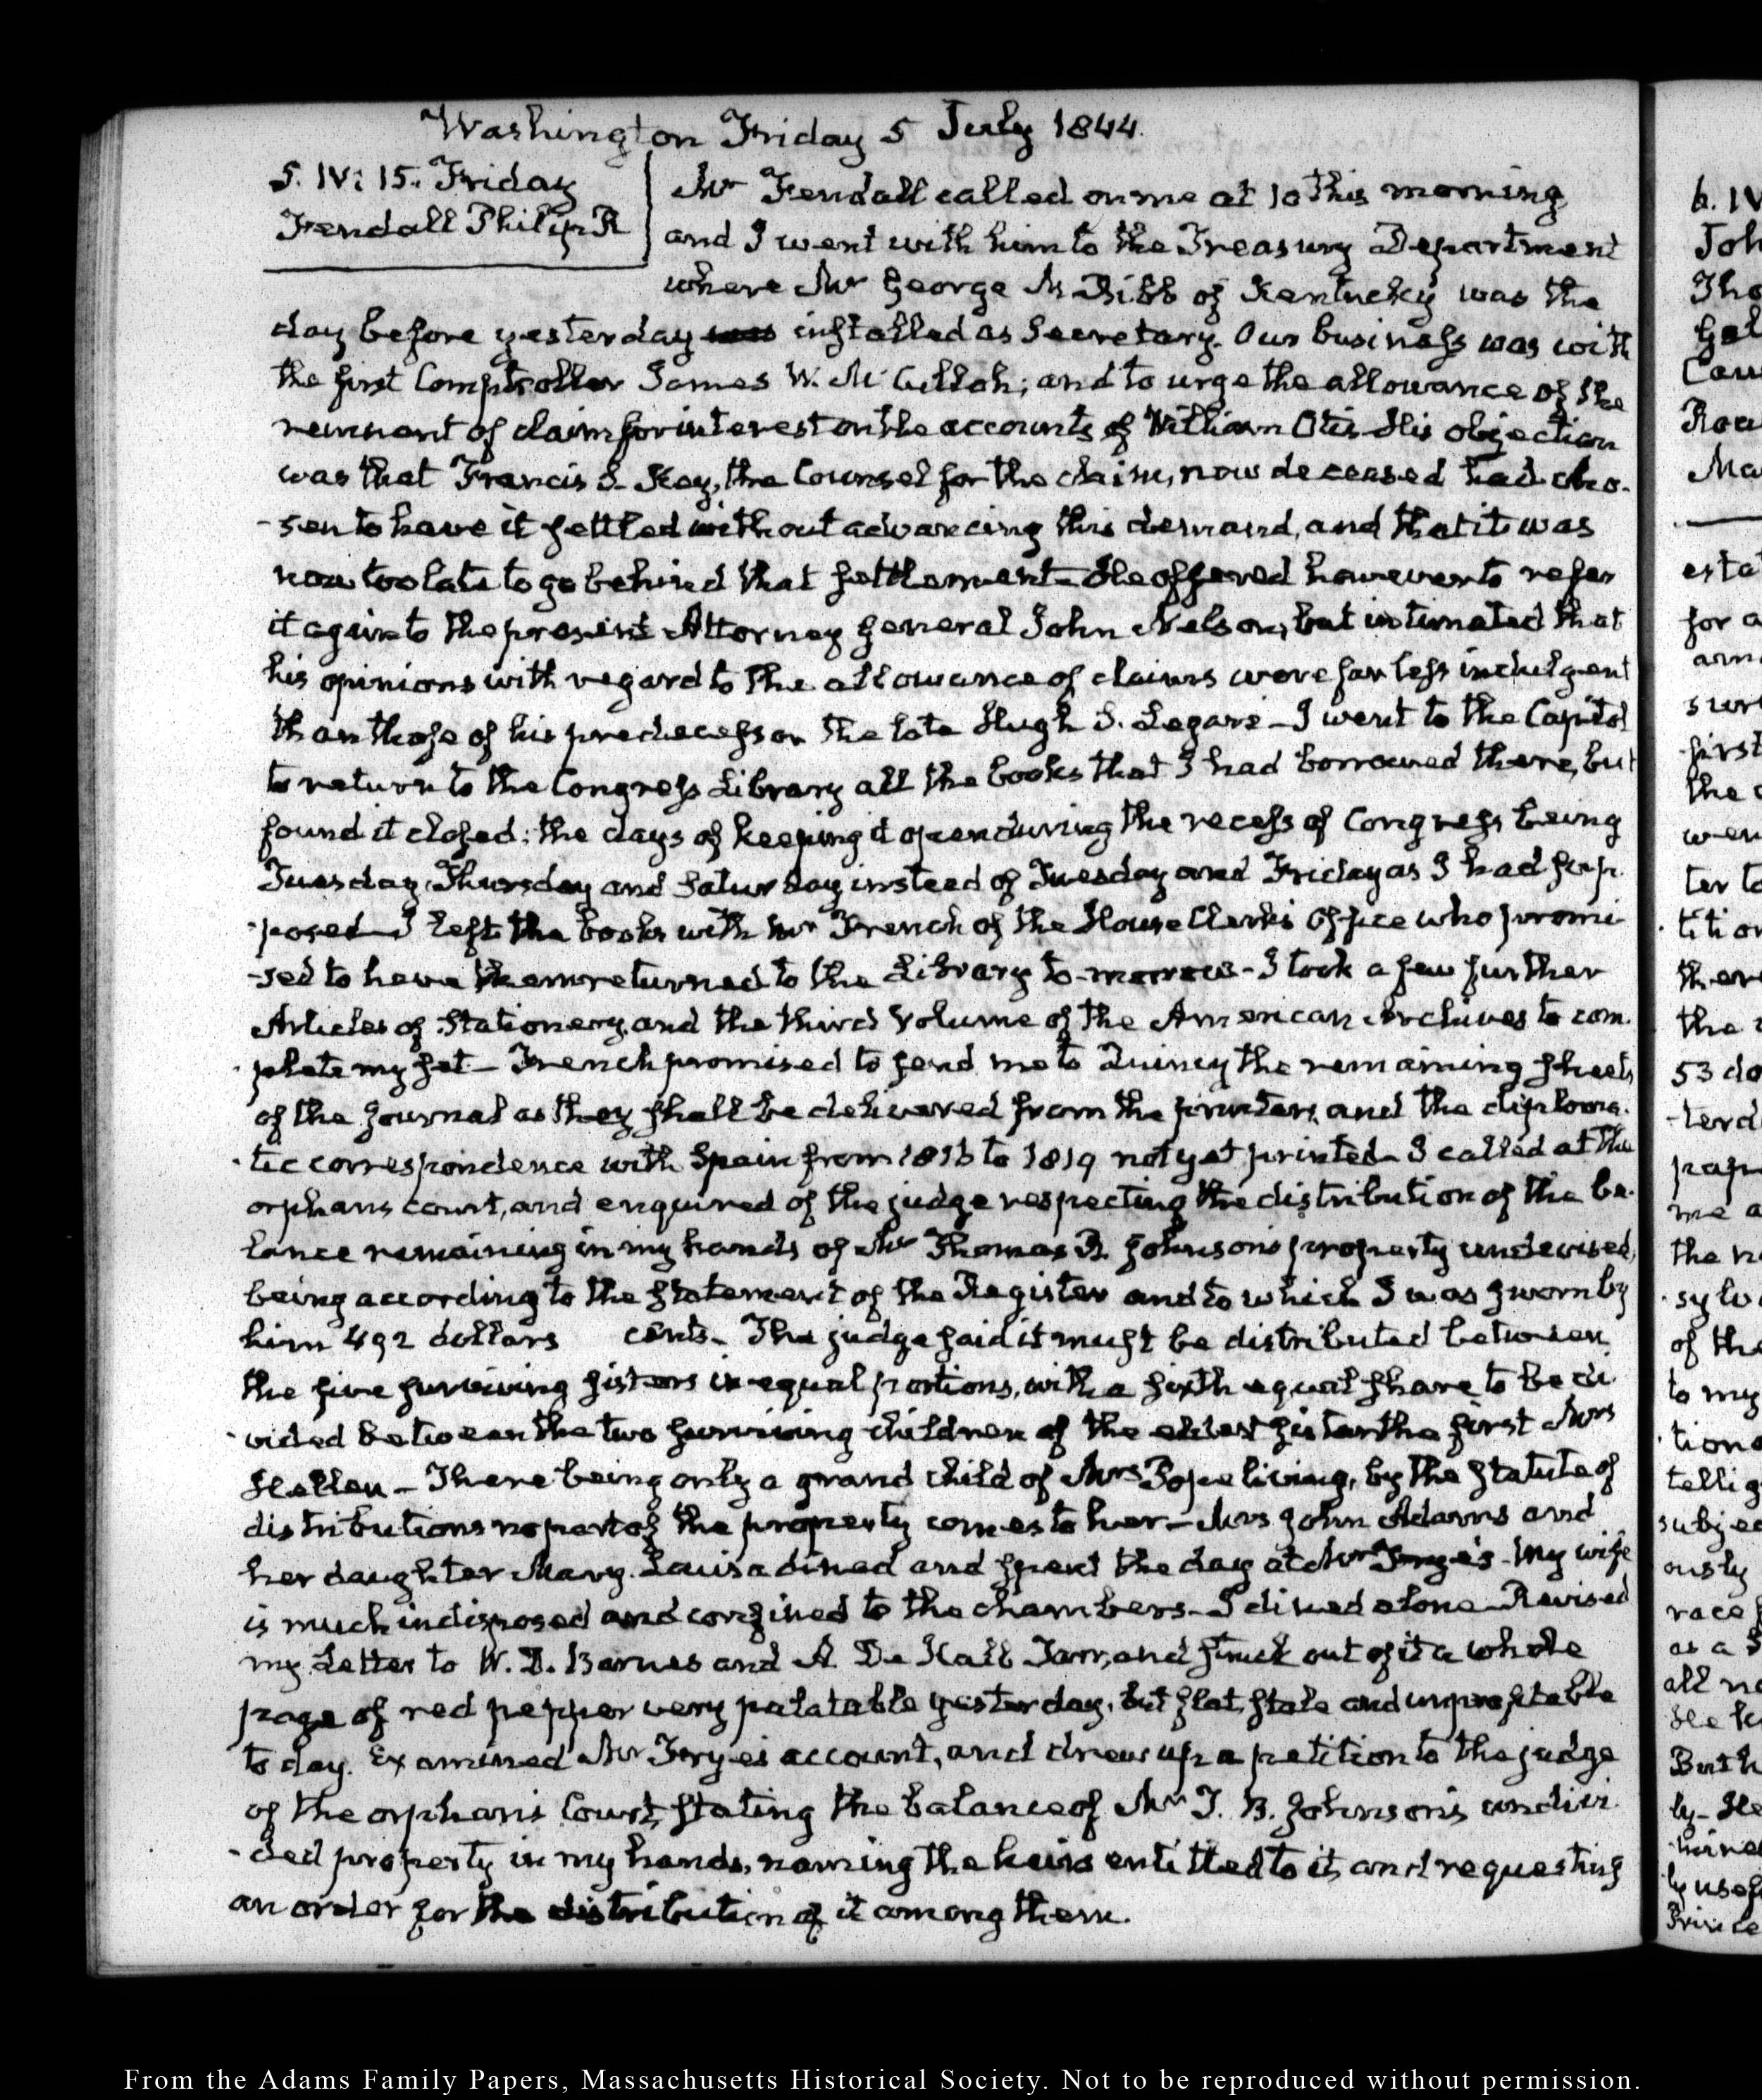 Washington Friday 5 July 1844.
5. IV: 15. Friday
Fendall Philip R
Mr Fendall called on me at 10 this morning
and I went with him to the Treasury Department
where Mr George M Bibb of Kentucky was the
day before yesterday was installed as Secretary. Our business was with
the first Comptroller James W. McCulloh; and to urge the allowance of the
remnant of claim for interest on the accounts of William Otis. His objection
was that Francis S. Key, the Counsel for the claim, now deceased had cho-
-sen to have it settled without advancing this demand, and that it was
now too late to go behind that settlement. He offered however to refer
it again to the present Attorney General John Nelson, but intimated that
his opinions with regard to the allowance of claims were far less indulgent
than those of his predecessor the late Hugh S. Legaré – I went to the Capitol
to return to the Congress Library all the books that I had borrowed there, but
found it closed; the days of keeping it open during the recess of Congress being
Tuesday, Thursday and Saturday instead of Tuesday and Friday as I had sup-
-posed – I left the books with Mr French of the House Clerk's Office who promi-
-sed to have them returned to the Library to-morrow – I took a few further
Articles of Stationery, and the third Volume of the American Archives to com-
-plete my set – French promised to send me to Quincy the remaining sheets
of the Journal as they shall be delivered from the printers, and the diploma-
-tic correspondence with Spain from 1816 to 1819 not yet printed – I called at the
orphans court, and enquired of the judge respecting the distribution of the ba-
lance remaining in my hands of Mr Thomas B. Johnson's property undevised,
being according to the statement of the Register and to which I was sworn by
him 492 dollars cents – The judge said it must be distributed between
the five surviving sisters in equal portions, with a sixth equal share to be di-
-vided between the two surviving children of the eldest sister the first Mrs
Hellen – There being only a grand child of Mrs Pope living, by the statute of
distributions no part of the property comes to her – Mrs John Adams and
her daughter Mary Louisa dined and spent the day at Mr Frye's – My wife
is much indisposed and confined to the chambers – I dined alone – Revised
my Letter to W. D. Barnes and A De Kalb Tarr, and struck out of it a whole
page of red pepper very palatable yesterday, but flat, stale and unprofitable
to day. Examined Mr Frye's account, and drew up a petition to the judge
of the orphan's Court, stating the balance of Mr T. B. Johnson's undivi-
-ded property in my hands, naming the heirs entitled to it, and requesting
an order for the distribution of it among them.
6. IV
for a
first
the
53 do
of the
to my
as a
From the Adams Family Papers, Massachusetts Historical Society. Not to be reproduced without permission.